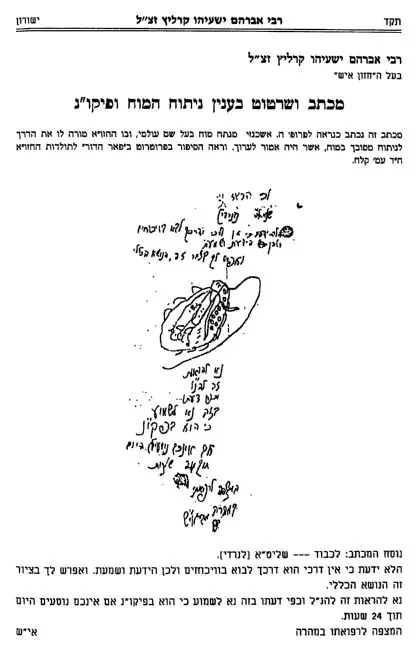 תקד
רבי אברהם ישעיהו קרליץ זצ"ל
ישורון
רבי אברהם ישעיהו קרליץ זצ"ל
בעל ה"חזון איש"
מכתב ושרטוט בענין ניתוח המוח ופיקו"נ
מכתב זה נכתב כנראה לפרופ' ה. אשכנזי מנתח מוח בעל שם עולמי, ובו החזו"א מורה לו את הדרך
לניתוח מסובך במוח, אשר היה אמור לערוך. וראה הסיפור בפרוטרוט ב"פאר הדור" לתולדות החזו"א
ח"ד עמ' קלח.
נא להראות
זה להנ"ל
וכפי דעתו
בזה נא לשמוע
כי הוא בפיקו"נ
תוך 24 שעות
נוסח המכתב: לכבוד --- שליט"א [לנרדי].
הלא ידעת כי אין דרכי הוא דרכך לבוא בוויכוחים ולכן הידעת ושמעת. ואפרש לך בציור
זה הנושא הכללי.
נא להראות זה להנ"ל וכפי דעתו בזה נא לשמוע כי הוא בפיקו"נ אם אינכם נוסעים היום
תוך 24 שעות.
המצפה לרפואתו במהרה
אי"ש